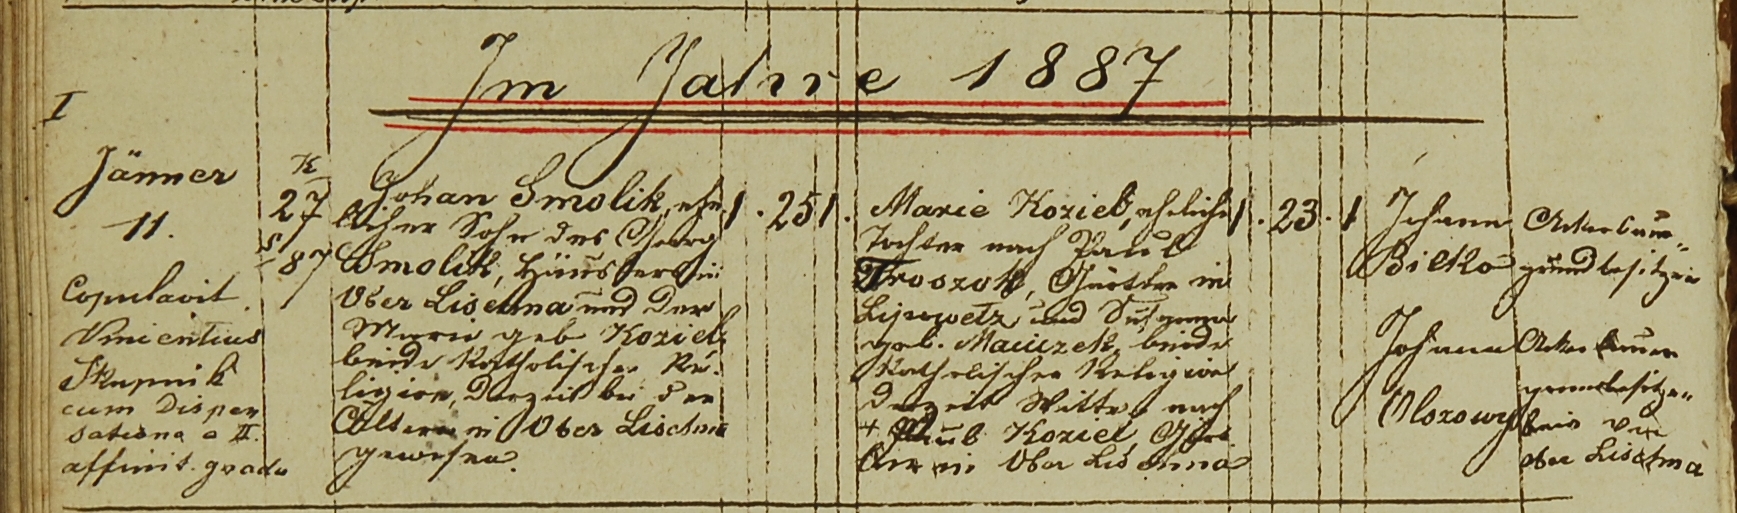 Im Jahre 1887
I
Jänner
11.
Copulavit
Vinientius
Skupnik
cum Dispen
sationa a II.
affinit. gradu
K
27
S
87
Johan Smolik, ehe
licher Sohn des Georg
Smolik, Häusler in
Ober Lischna und der
Marie geb Koziel
beide Katholischer Re-
ligion, derzeit bei den
Ältern in Ober Lischna
gewesen.
1 . 25 1 .
Marie Koziel, eheliche
Tochter nach Paul
Troszok, Gärtler in
Lipowetz und Susanna
geb. Maciczek beide
Katholischer Religion
derzeit Wittwe nach
+ Paul Koziel, Gärt
ler in Ober Lischna
1 . 23 . 1
Johann
Bilko
Ackerbauer
grundbesitzer
Johann
Mozowy
Ackerbauer
grundbesitzer
beide von
ober Lischna